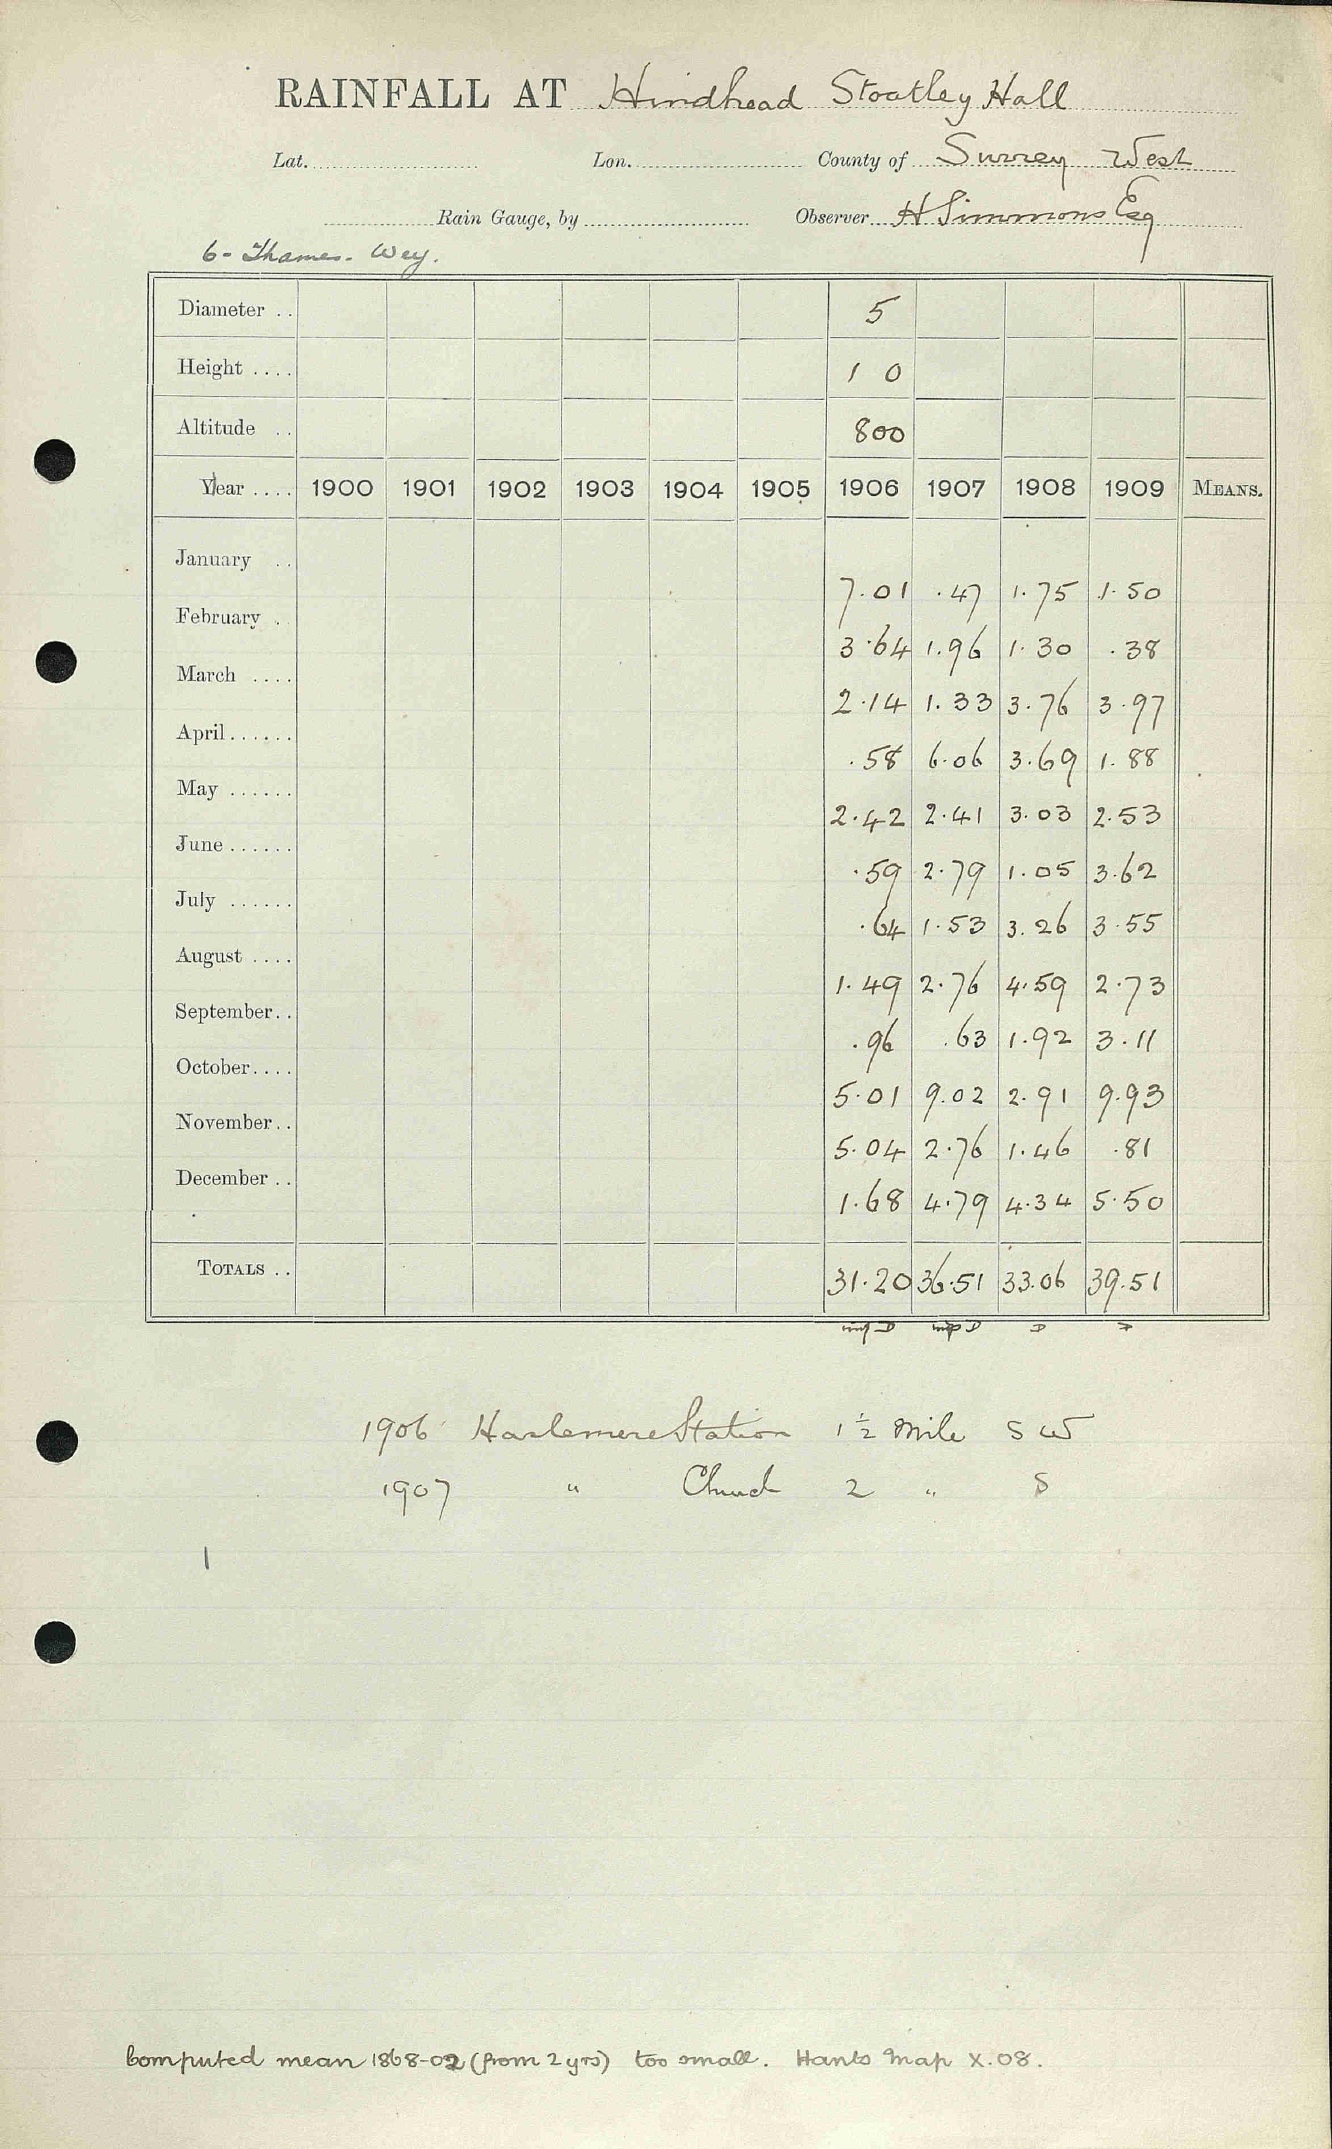 RAINFALL AT Hindhead Stoatley Hall
Lat. Lon. County of Surrey West
Rain Gauge, by Observer H Simmons Esq
6- Thames- Wey.
Diameter .. 5
Height .... 1 0
Altitude .. 800
Year .... 1900 1901 1902 1903 1904 1905 1906 1907 1908 1909 MEANS.
January .. 7.01 .47 1.75 1.50
February . 3.64 1.96 1.30 .38
March .... 2.14 1.33 3.76 3.97
April...... .58 6.06 3.69 1.88
May ...... 2.42 2.41 3.03 2.53
June ...... .59 2.79 1.05 3.62
July ...... .64 1.53 3.26 3.55
August .... 1.49 2.76 4.59 2.73
September.. .96 .63 1.92 3.11
October.... 5.01 9.02 2.91 9.93
November.. 5.04 2.76 1.46 .81
December .. 1.68 4.79 4.34 5.50
TOTALS .. 31.20 36.51 33.06 39.51
D D D
1906 Haslemere Station 1½ Mile S W
1907 " Church 2 " S
1
Computed mean 1868-02 (from 2 yrs) too small. Hants Map X.08.